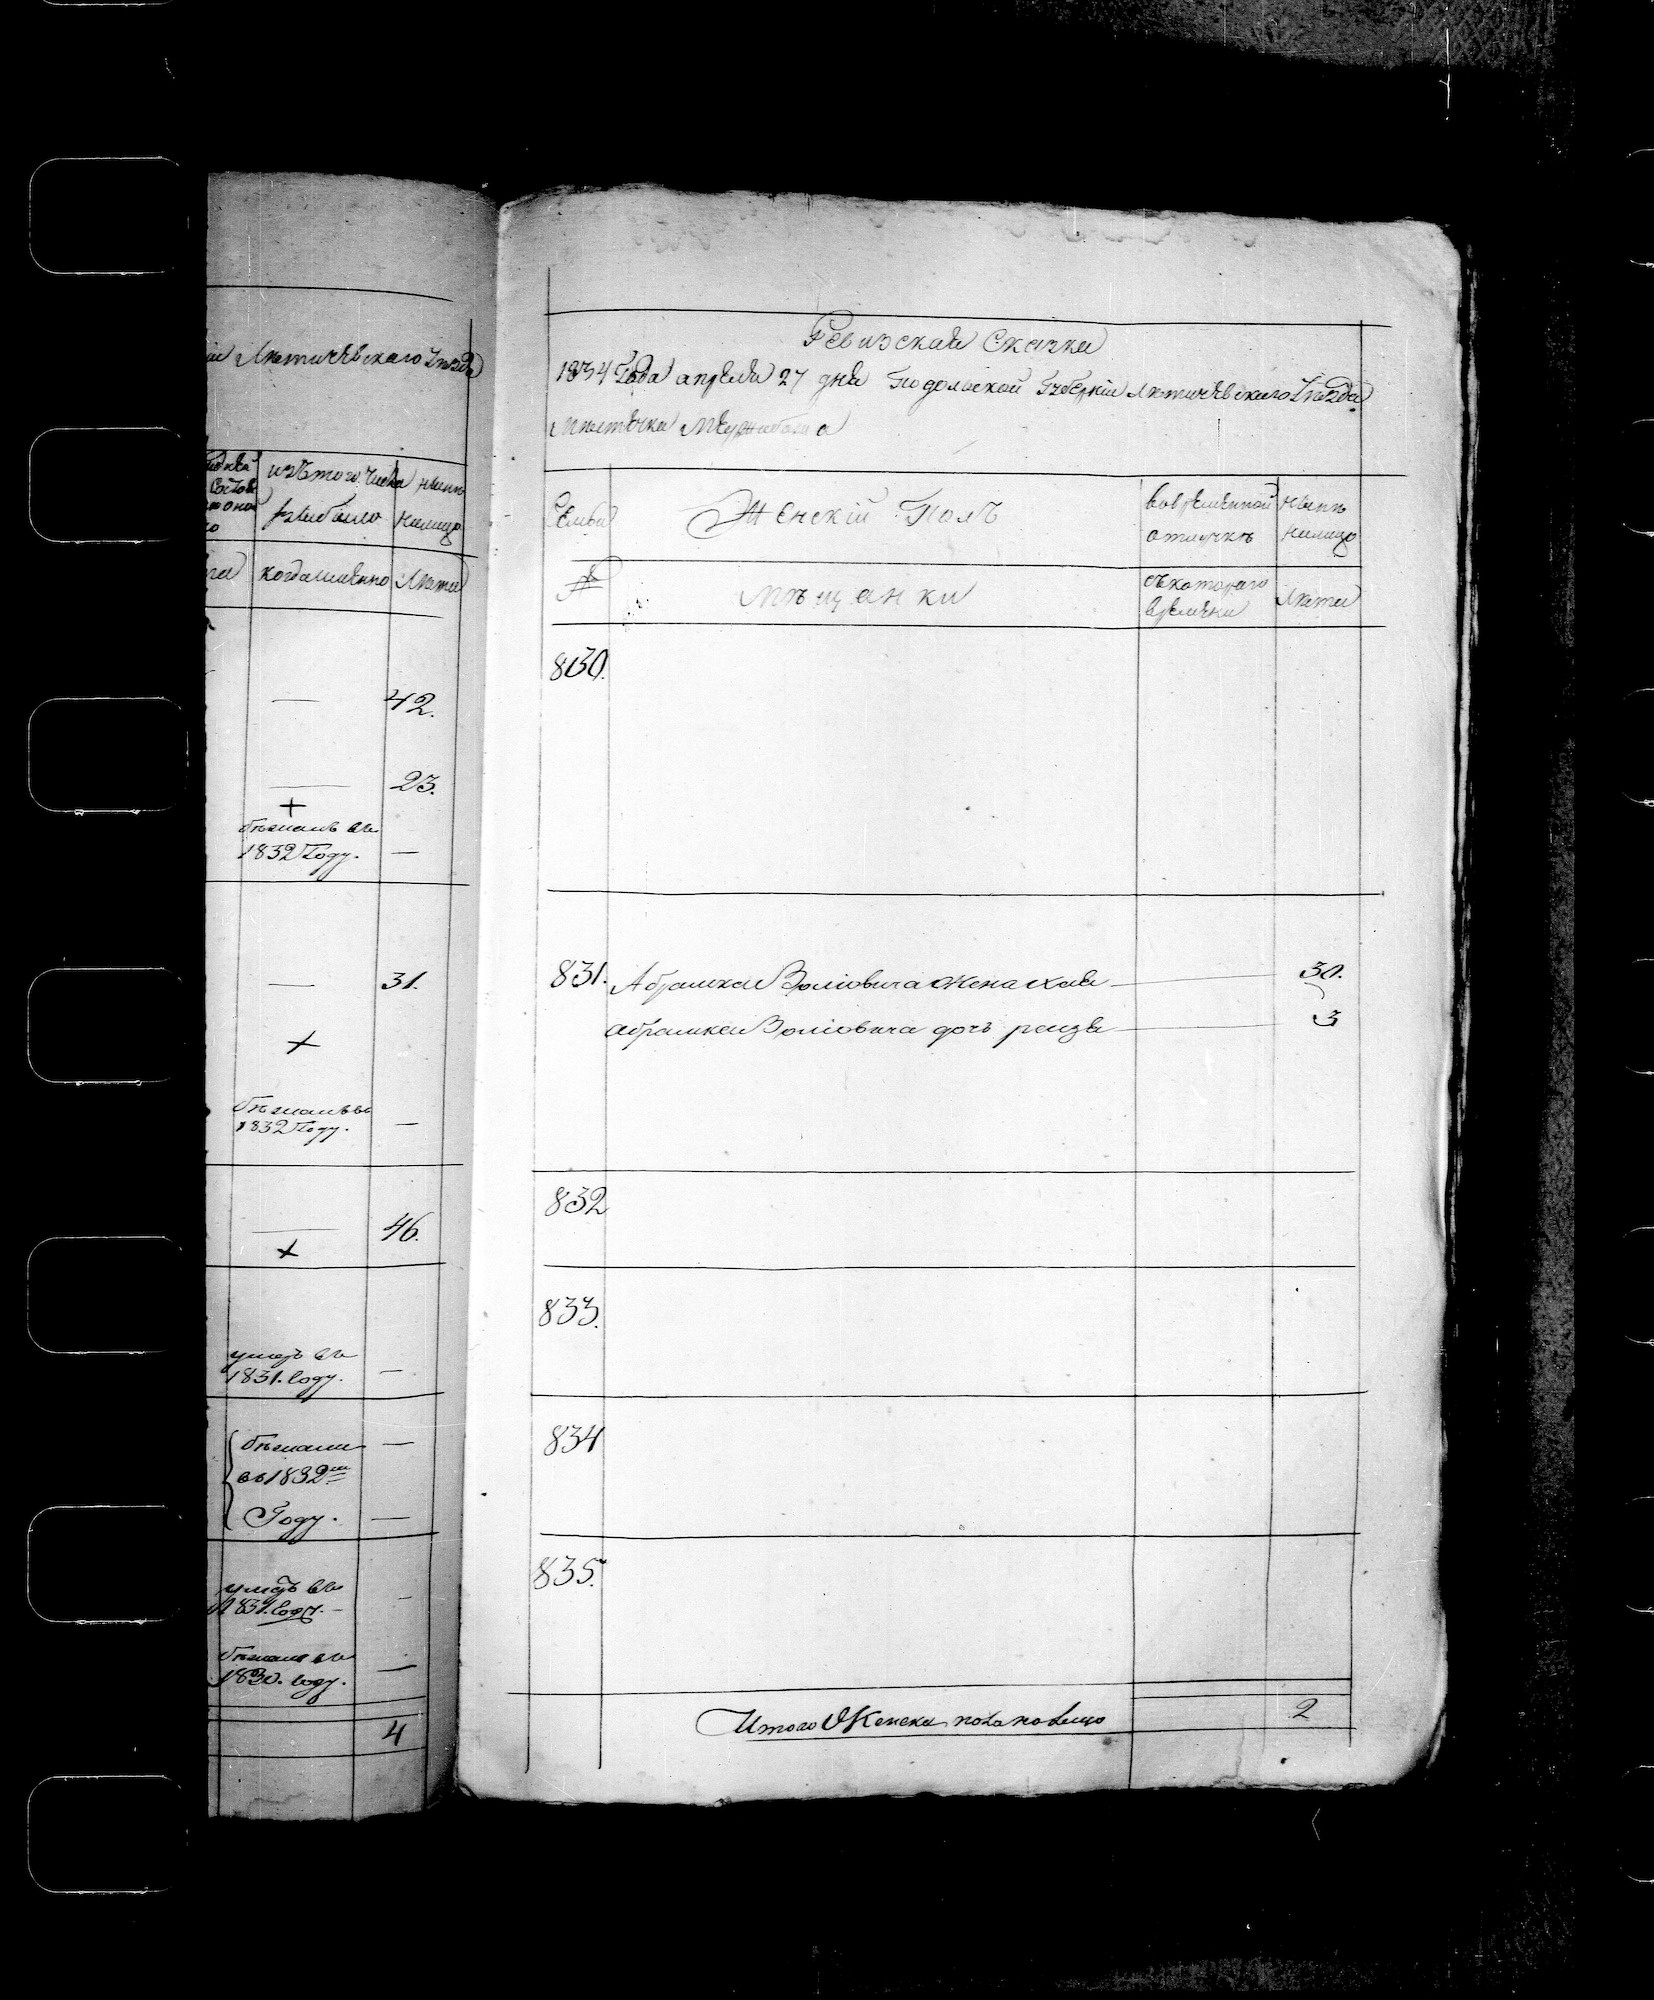 Летичевскаго Уезда
изъ того числа ныне
выбыло налицо
когда именно Лета
— 42.
— 23.
бежалъ въ
1832 Году. —
— 31.
бежалъ въ
1832 Году. —
— 46.
умеръ въ
1831. году. —
бежали —
въ 1832м
Году. —
умеръ въ
1831. году. —
бежалъ въ
1830. году. —
4
Ревизская Сказка
1834 Года апреля 27 дня Подольской Губернии Летичевскаго Уезда
Местечка Меджибожа
Семьи Женскій Полъ Вовременной ныне
отлучке налицо
№ мещанки съ котораго Лета
времени
830.
831. Абрамка Волковича жена Хая — 30.
Абрамка Волковича дочь рейзя — 3
832
833.
834
835.
Итого Женска пола на лицо 2